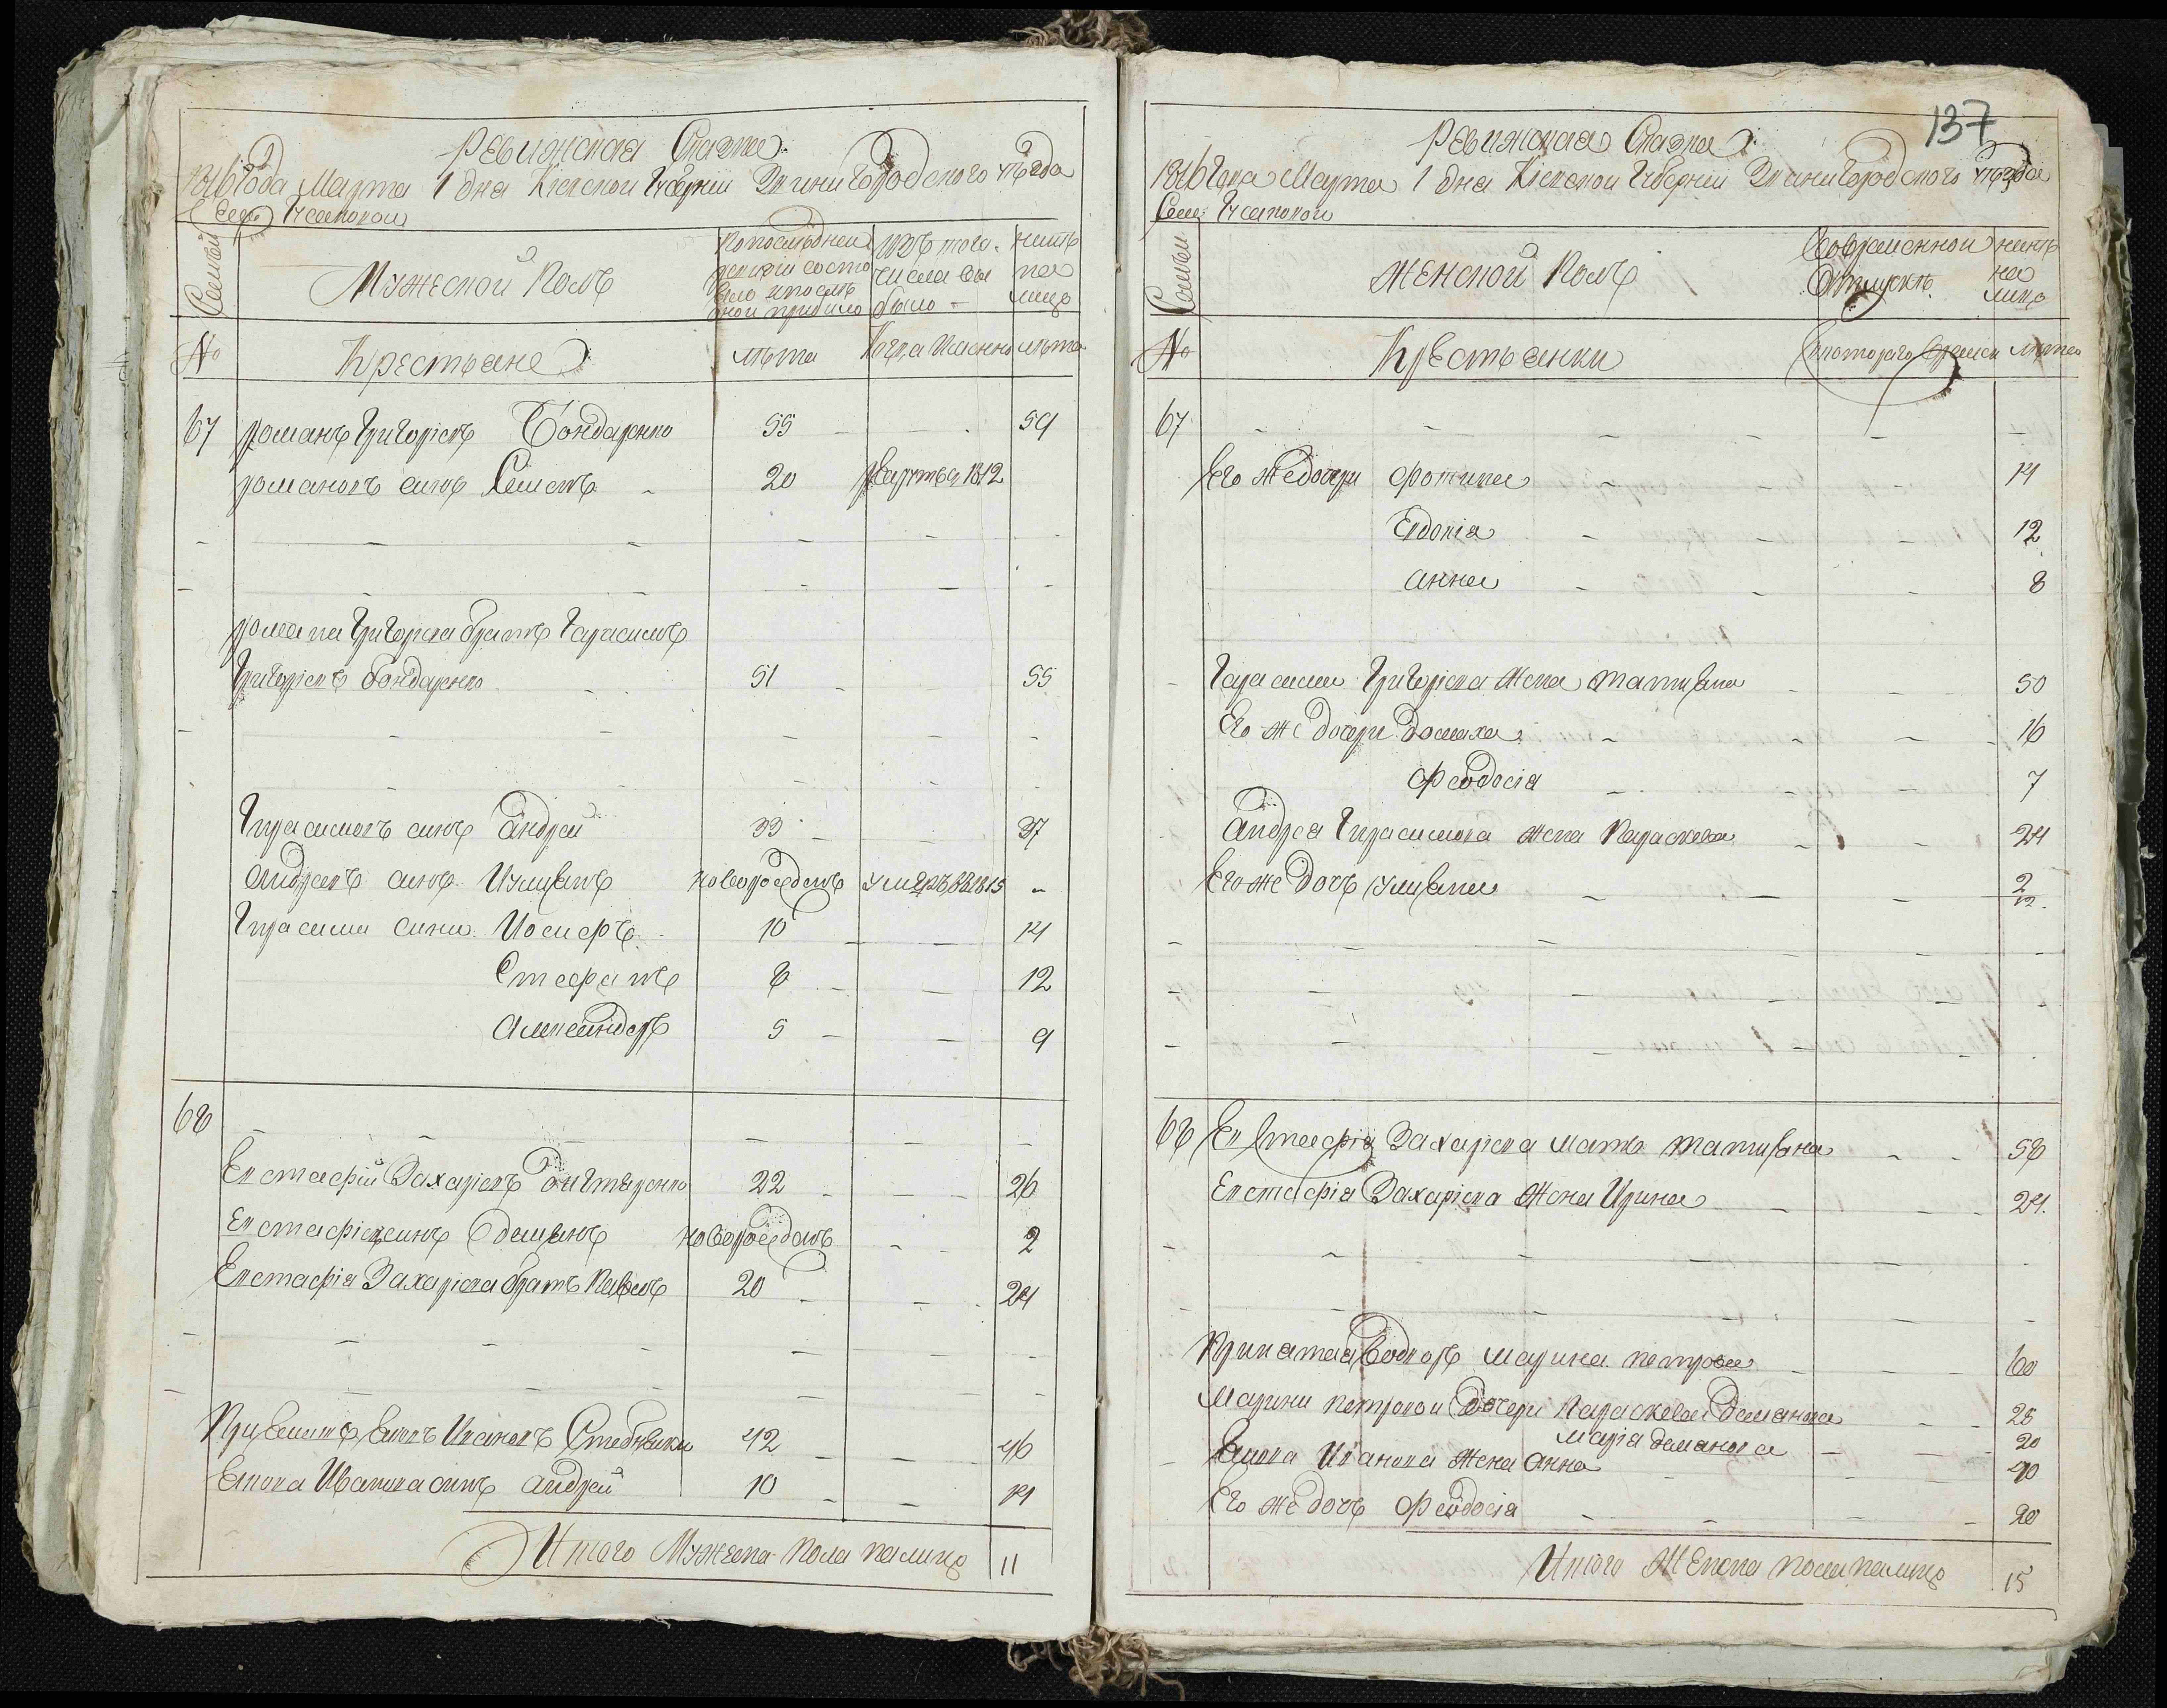 Ревижская Сказка
1816 года Марта 1 дня Кіевской Губерніи Звинигородского уезда
Села Чесновой
Семьи
Мужеской Полъ
По последней ревизіи состо яло и после оной прибыло
Изъ того числа вы было
ныне на лицо
№
Крестьяне
лета
Когда Именно
лета
67 Романъ Григоріевъ Бондаренко 55 - - 59
Романовъ синъ Семенъ - 20 рекрутъ въ 1812
Романа Григоріева братъ Гарасимъ
Григоріевъ Бондаренко 51 - 55
Гирасимовъ синъ Андрей 33 - 37
Андреевъ синъ Иулиянъ новорожденъ умеръ въ 1815 -
Гирасима сини Иосифъ 10 - - 14
Стефанъ 8 - - 12
Александеръ 5 - - 9
68
Евстафій Захаріевъ Дигтяренко 22 - - 26
Евстафіевъ синъ Демянъ новорожденъ - - 2
Евстафія Захаріева братъ Павелъ 20 - - 24
Принятъ Яковъ Ивановъ Стебливки 42 - - 46
Якова Иванова синъ Андрей 10 - - 14
Итого Мужеска Пола налицо 11
137
Ревижская Сказка
1816 Года Марта 1 дня Кіевской Губерніи Звинигородского уезда
Села Чесновой
Семьи
Женской Полъ
Во временной отлучке
ныне на лицо
№
Крестьянки
Скоторого времени
лета
67
Его же дочери Фотина - - 14
Евдокія - - 12
Анна - - 8
Гарасима Григоріева жена Татияна - - 50
Его же дочери Домаха - - 16
Феодосія - - 7
Андрея Гирасимова жена Параскева - - 24
Его же дочъ Улияна - - 2/12
68 Евстафія Захаріева мать Татияна - - 58
Евстафія Захаріева жена Ирина - - 24
Принятая Водворъ Марина Петрова - - 60
Марини Петровой дочери Параскева Деманова - - 28
Марія Деманова - 20
Якова Иванова жена Анна - - 40
Его же дочъ Феодосія - - 20
Итого Женска пола налицо 15